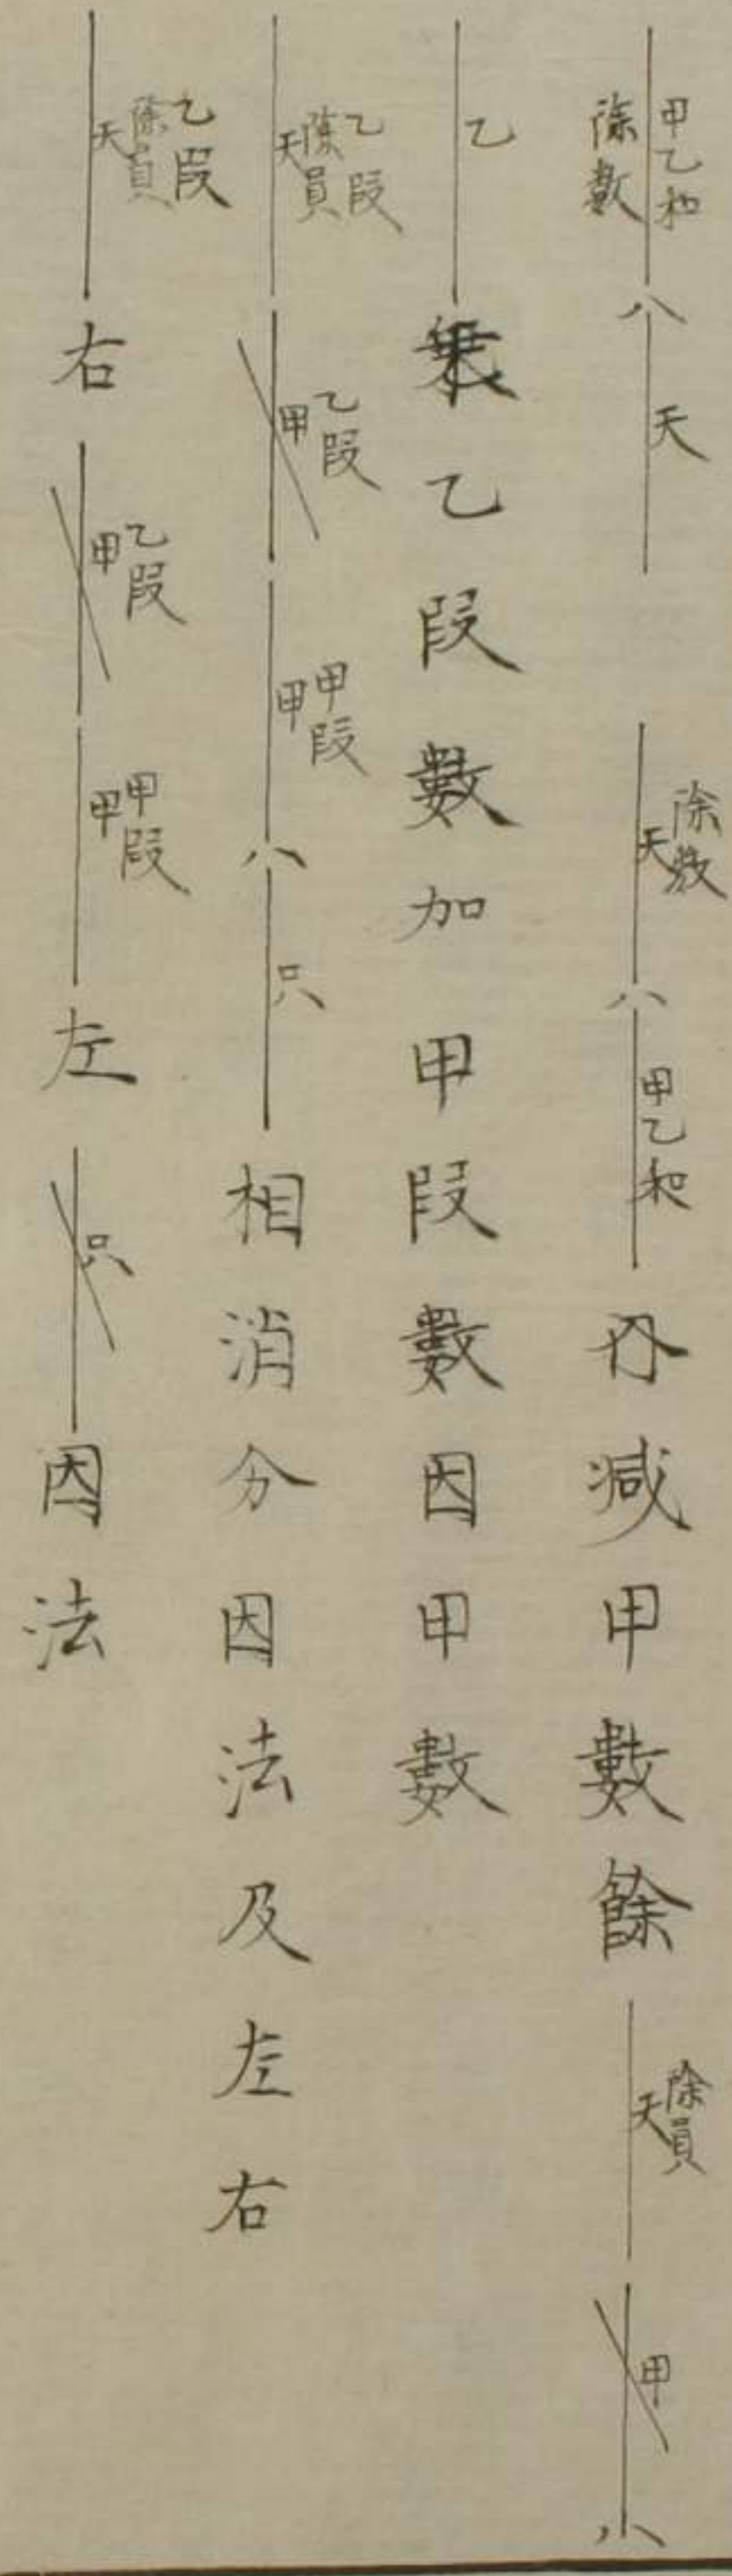 甲乙和 除數 八 天 除數 天 八 甲乙和 內減甲數餘 除員 天 甲 八
乙 乗乙段數加甲段數因甲數
乙段 除員 天 乙段 甲 甲段 甲 八 只 相消分因法及左右
乙段 除員 天 右 乙段 甲 甲段 甲 左 只 因法